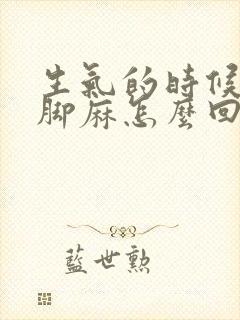 生氣的時候
腳麻怎麼回
藍世勲